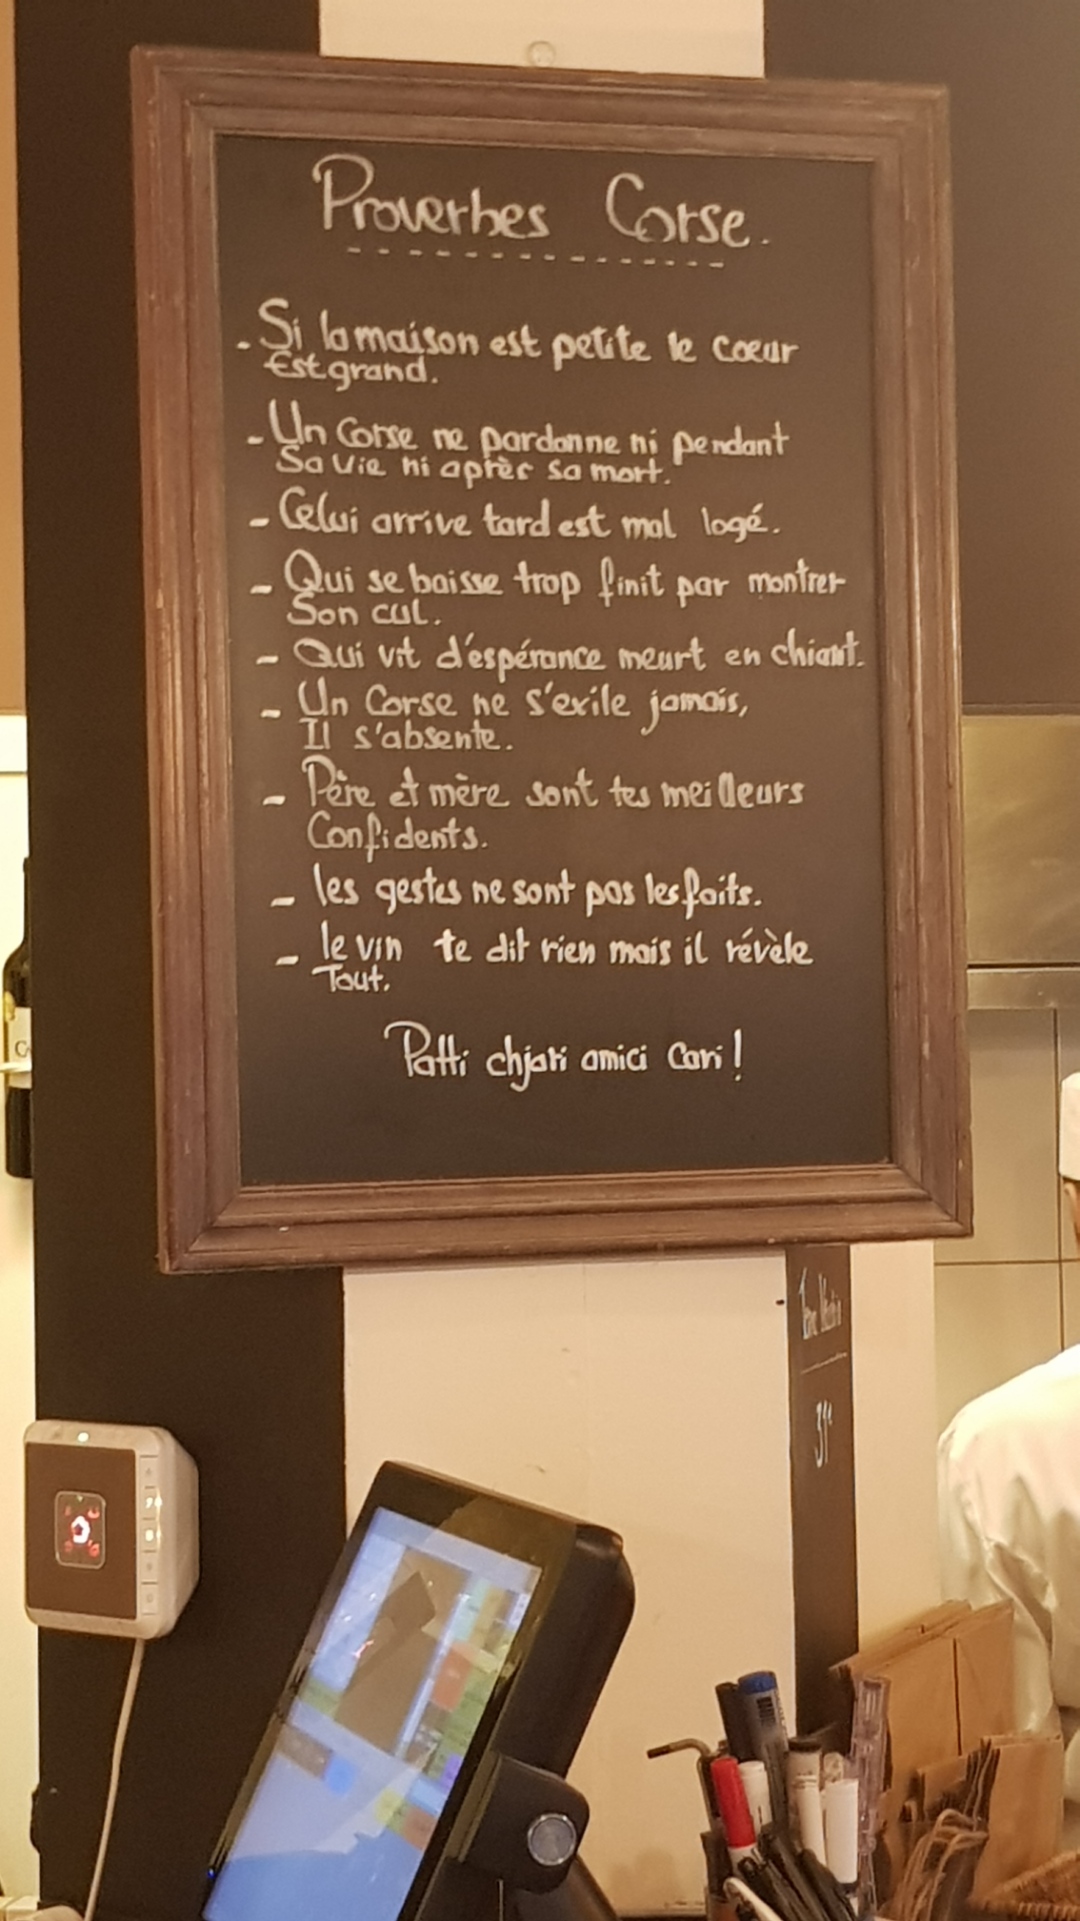 Proverbes Corse.
- Si la maison est petite le cœur
Est grand.
- Un Corse ne pardonne ni pendant
Sa vie ni après sa mort.
- Celui arrive tard est mal logé.
- Qui se baisse trop finit par montrer
Son cul.
- Qui vit d'espérance meurt en chiant.
- Un Corse ne s'exile jamais,
Il s'absente.
- Père et mère sont tes meilleurs
Confidents.
- les gestes ne sont pas les faits.
- le vin te dit rien mais il révèle
Tout.
Patti chjari amici cari !
31€